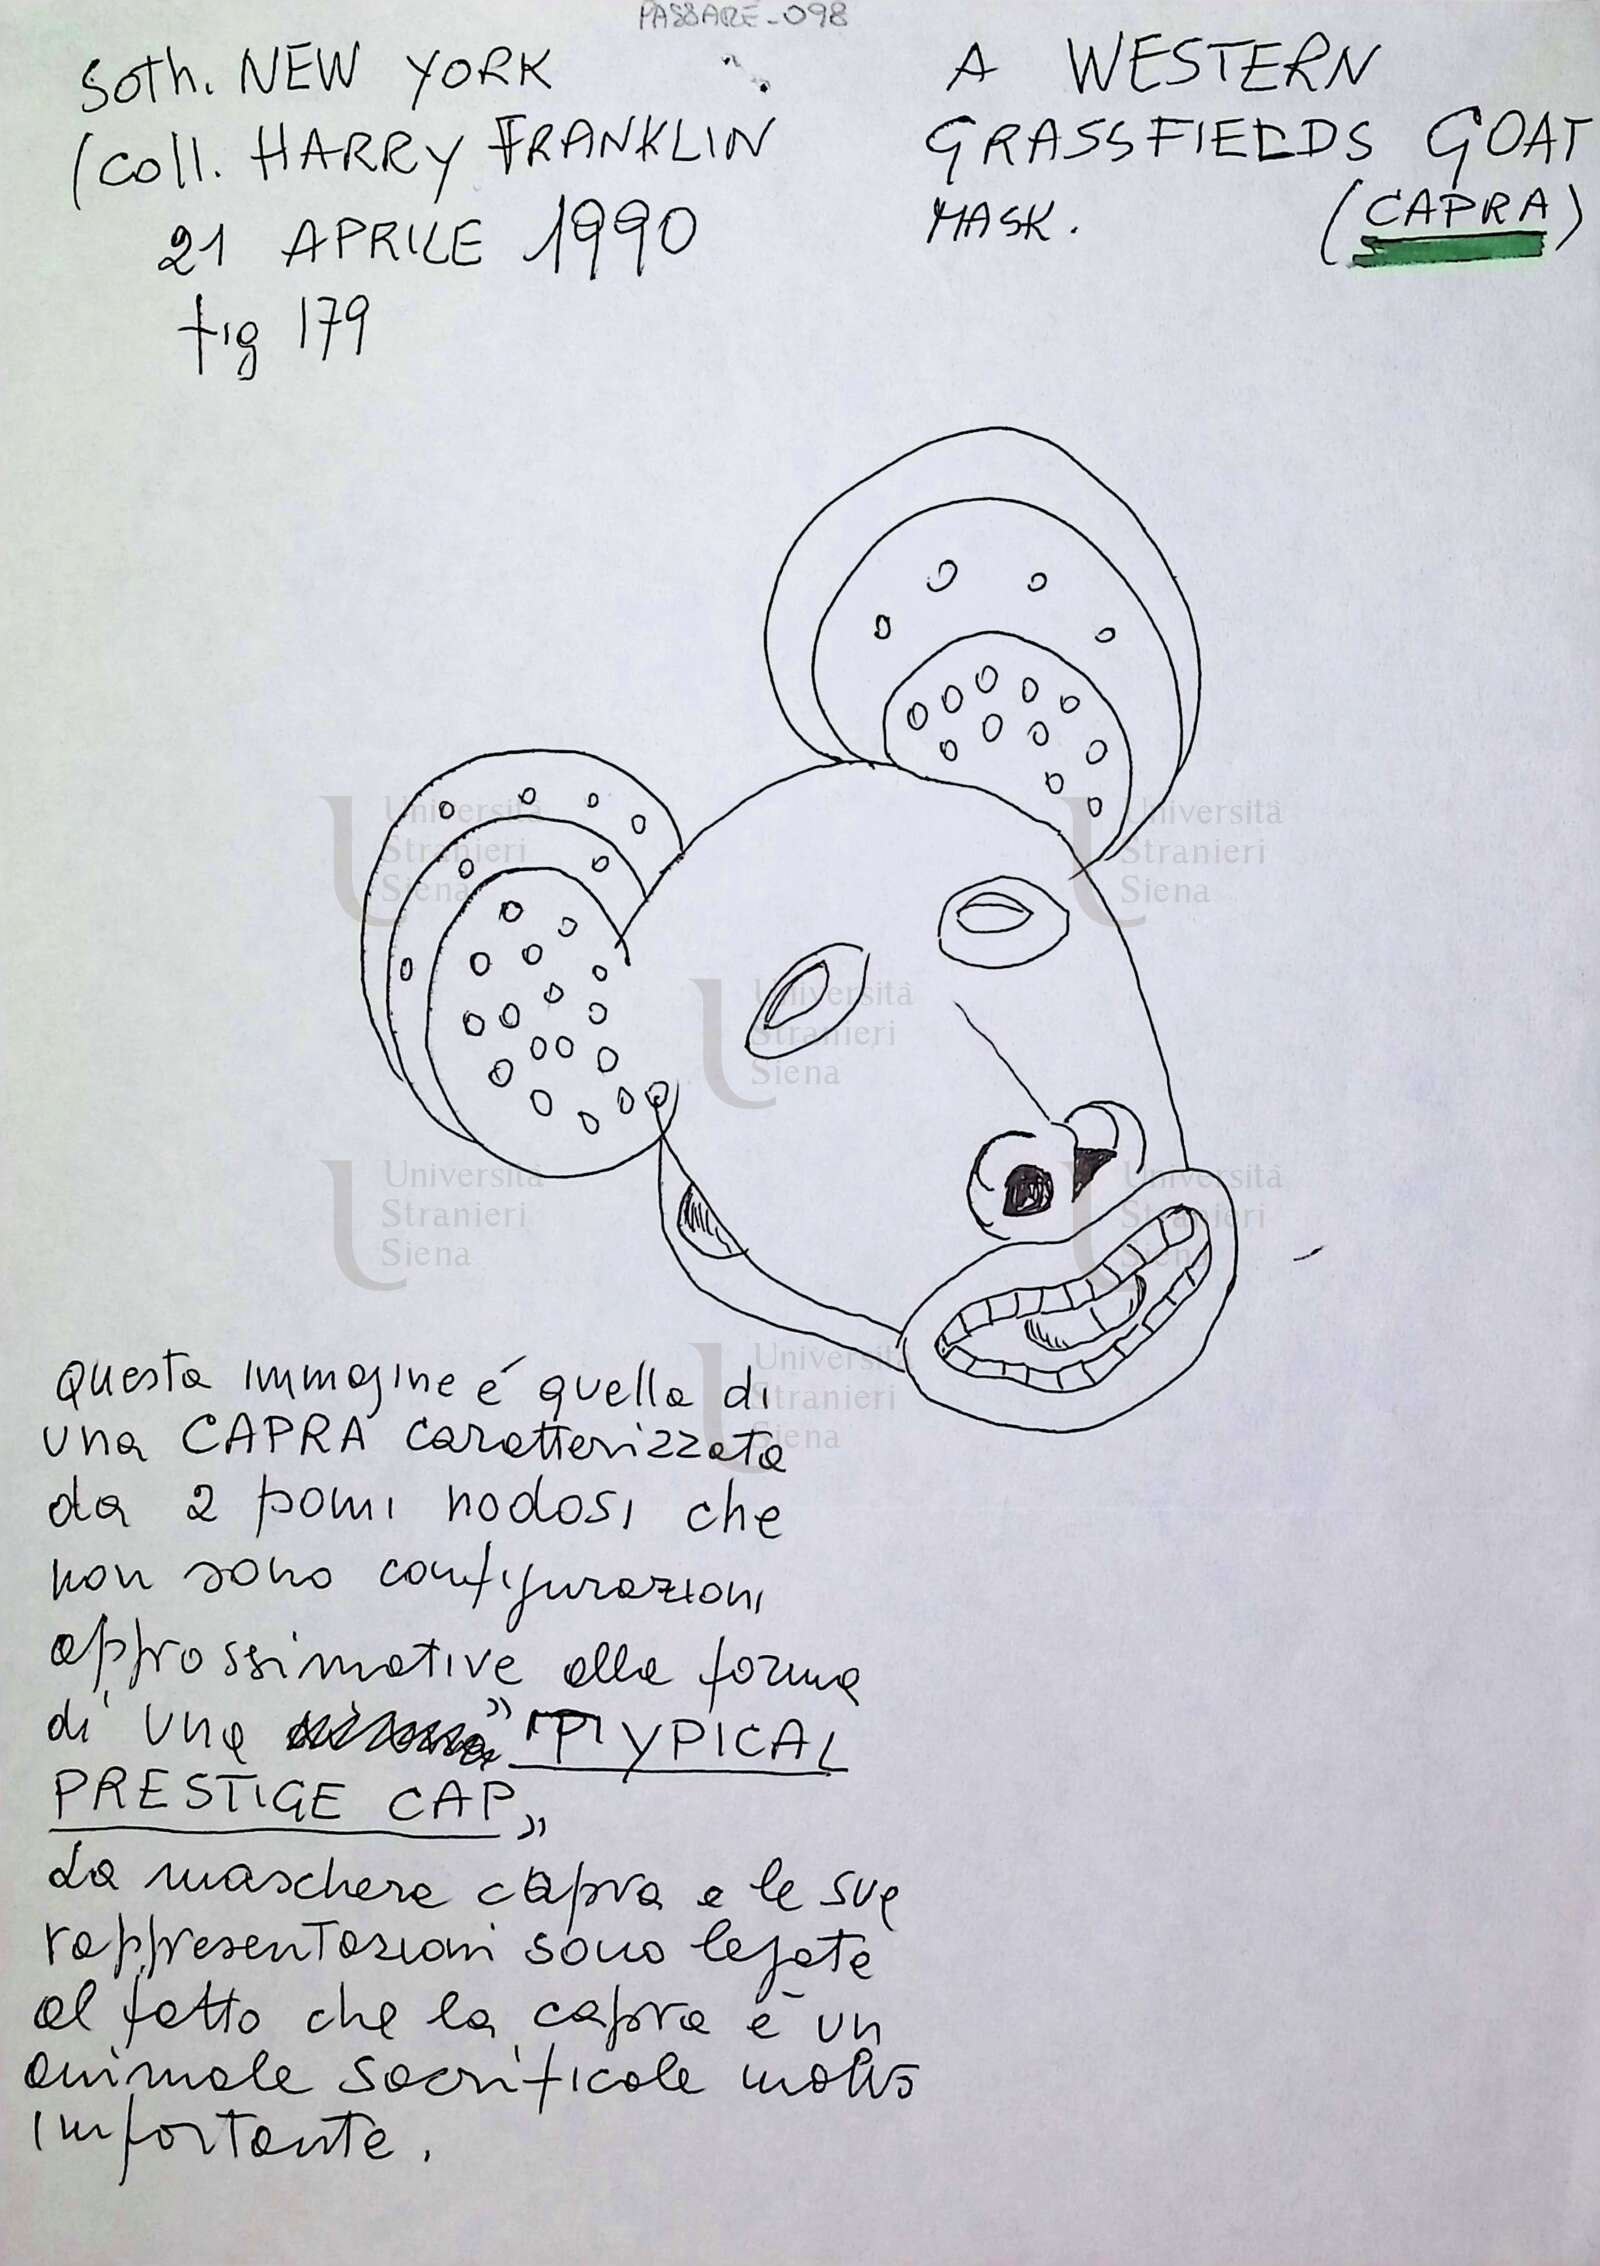 PASSARE-098
Soth. NEW YORK
(coll. HARRY FRANKLIN
21 APRILE 1990
fig 179
A WESTERN
GRASSFIELDS GOAT
MASK. (CAPRA)
Questa immagine é quella di
una CAPRA caratterizzata
da 2 pomi nodosi che
non sono configurazioni
approssimative alla forma
di una "TYPICAL
PRESTIGE CAP"
La maschera capra e le sue
rappresentazioni sono legate
al fatto che la capra è un
animale sacrificale molto
importante.
Università
Stranieri
Siena
Università
Stranieri
Siena
Università
Stranieri
Siena
Università
Stranieri
Siena
Università
Stranieri
Siena
Università
Stranieri
Siena